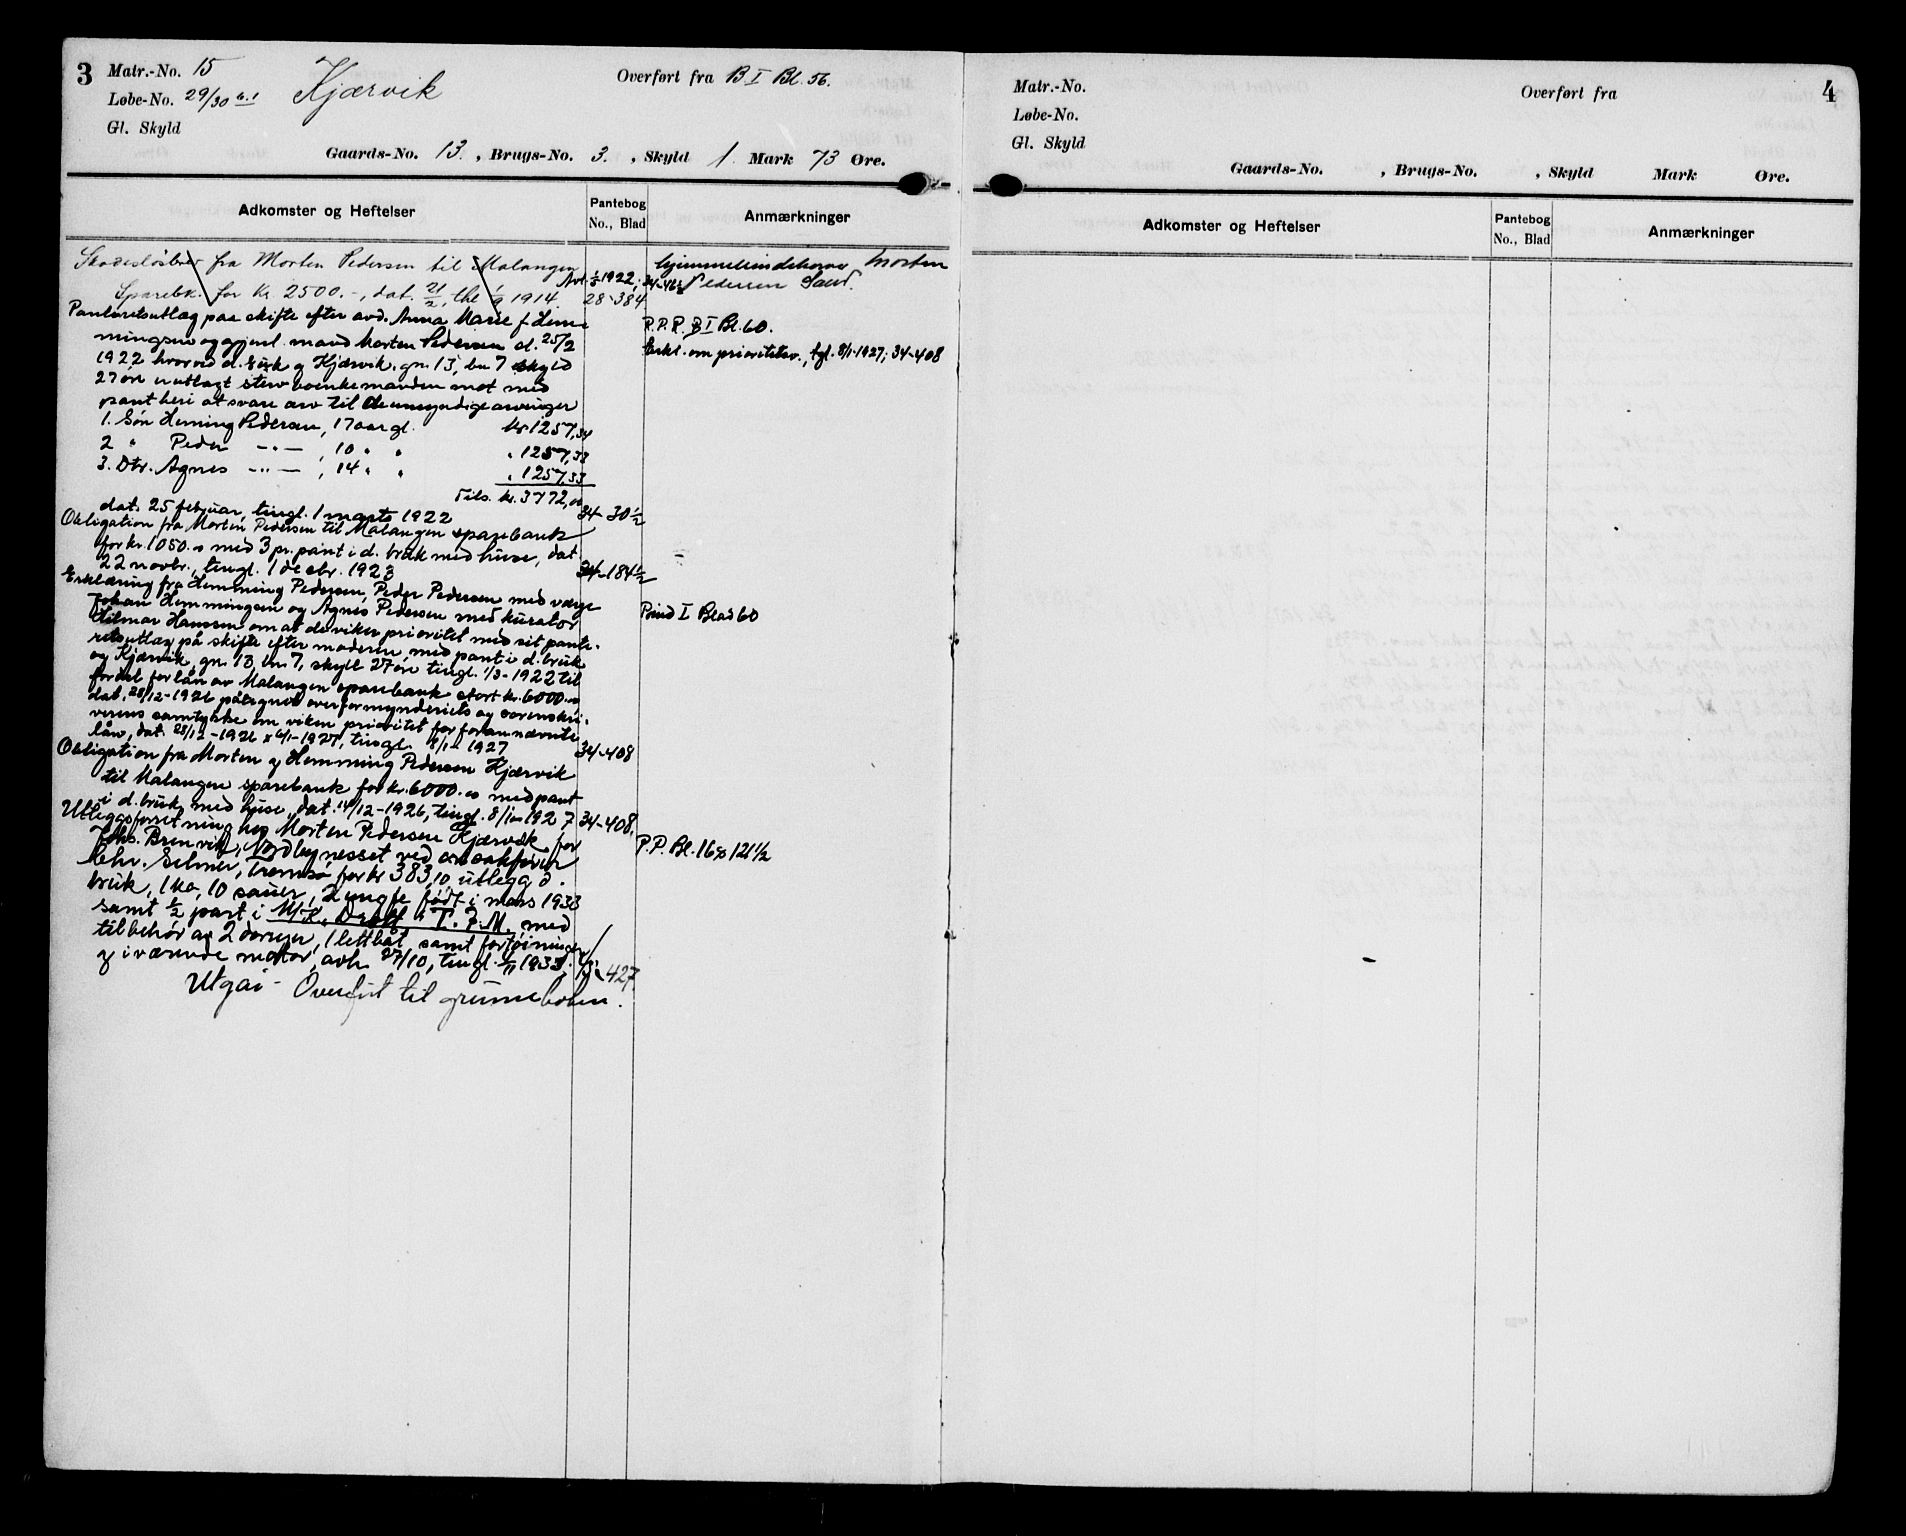 3 Matr.-No. 15 Kjærvik Overført fra B I Bl. 56.
Løbe-No. 29/30 b.1
Gl. Skyld
Gaards-No. 13. , Brugs-No. 3. , Skyld 1. Mark 73 Øre.
Adkomster og Heftelser
Pantebog
No., Blad
Anmærkninger
Skadesløsbrev fra Morten Pedersen til Malangen
Sparebk. for Kr. 2500.-, dat. 21/2, 1914
28-384
Avl. 1922; 34-46
hjemmelsindehaver Morten
Pedersen
Panteretsutlæg paa skifte efter avd. Anna Marie f. Hem-
mingsen og gjenl. mand Morten Pedersen d. 25/2
1922 hvorved d. bruk og Kjærvik, gn. 13, bn 7 skyld
27 øre er utlagt enkemanden mot med
pant heri at svare arv til de umyndige arvinger
1. Søn Heming Pedersen, 17 aar gl. kr. 1257,34
2 " Peder -"- , 10 " " " 1257,33
3. Dtr. Agnes -"- , 14 " " " 1257,33
Tils. kr. 3772,00
dat. 25 februar, tingl. 1 marts 1922
34-30½
P.P.R. B I Bl. 60.
Erkl. om prioritetsv., tgl. 8/1-1927; 34-408
Obligation fra Morten Pedersen til Malangen sparebank
for kr. 1050.00 med 3 pr. pant i d. bruk med huse, dat.
22 novbr., tingl. 1 decbr. 1923
34-184½
Erklæring fra Hemming Pedersen, Peder Pedersen med værge
Johan Hemmingsen og Agnes Pedersen med kurator
Hilmar Hansen om at de viker prioritet med sit pante-
retsutlæg på skifte efter moderen med pant i d. bruk
og Kjærvik, gn. 13, bn. 7, skyld 27 øre tingl. 1/3-1922 til
fordel for lån av Malangen sparebank stort kr. 6000.00
dat. 28/12-1926 påtegnet overformynderiets og sorenskri-
verens samtykke om viken prioritet for forannævnte
lån, dat. 28/12-1926 & 6/1-1927, tingl. 8/1-1927
34-408
Bind I Blad 60
Obligation fra Morten og Hemming Pedersen Kjærvik
til Malangen sparebank for kr. 6000.00 med pant
i d. bruk med huse, dat. 14/12-1926, tingl. 8/1-1927
34-408.
Utleggsforretning hos Morten Pedersen Kjærvik for
Johs. Brenvik, Nordbynesset ved
Chr. Selmer, Tromsø for kr 383,10 utlegg d.
bruk, 1 ko, 10 sauer, 2 ungfe født i mars 1933
samt ½ part i M/K. Drott T. 7. M. med
tilbehør av 2 doryer, 1 lettbåt, samt fortøininger
og iværende motor, avh. 27/10, tingl. 1933.
427
P.P. Bl. 16 & 121½
Utgår - Overført til grunnboken.
4
Matr.-No. Overført fra
Løbe-No.
Gl. Skyld
Gaards-No. , Brugs-No. , Skyld Mark Øre.
Adkomster og Heftelser
Pantebog
No., Blad
Anmærkninger